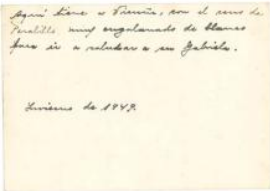 Aquí tiene a Vicuña, con el cerro de
Peralillo muy engalanado de blanco
para ir a saludar a su Gabriela.
Invierno de 1949.